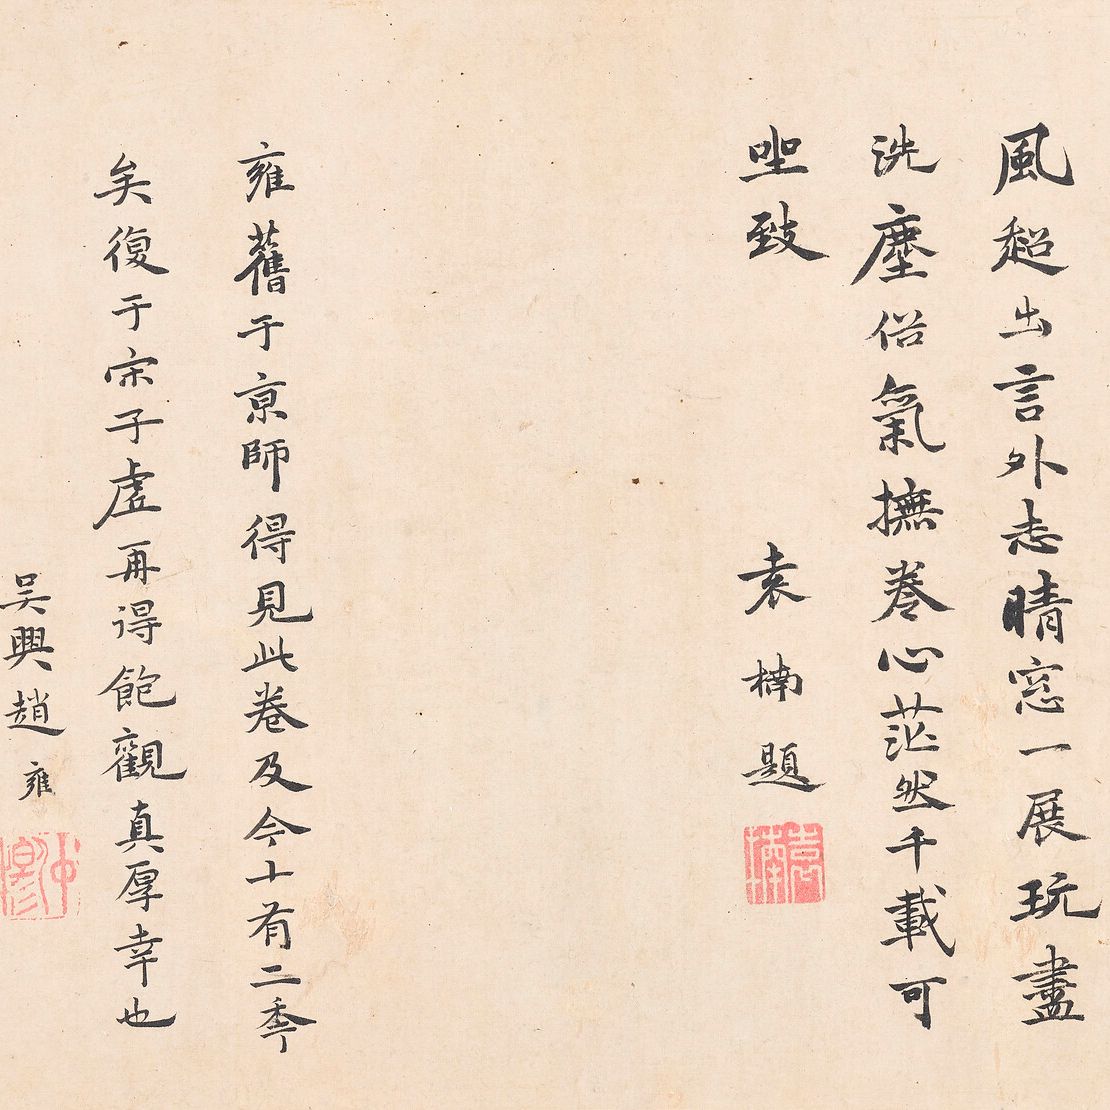 風超出言外志晴窓一展玩盡
洗塵俗氣撫卷心茫然千載可
坐致
袁楠題
袁楠
雍舊于京師得見此卷及今十有二季
矣復于宋子虛再得飽觀真厚幸也
吳興趙雍
仲穆